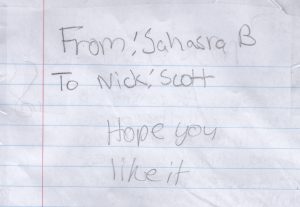 From: Sahasra B
To Nick: Scott
Hope you
like it